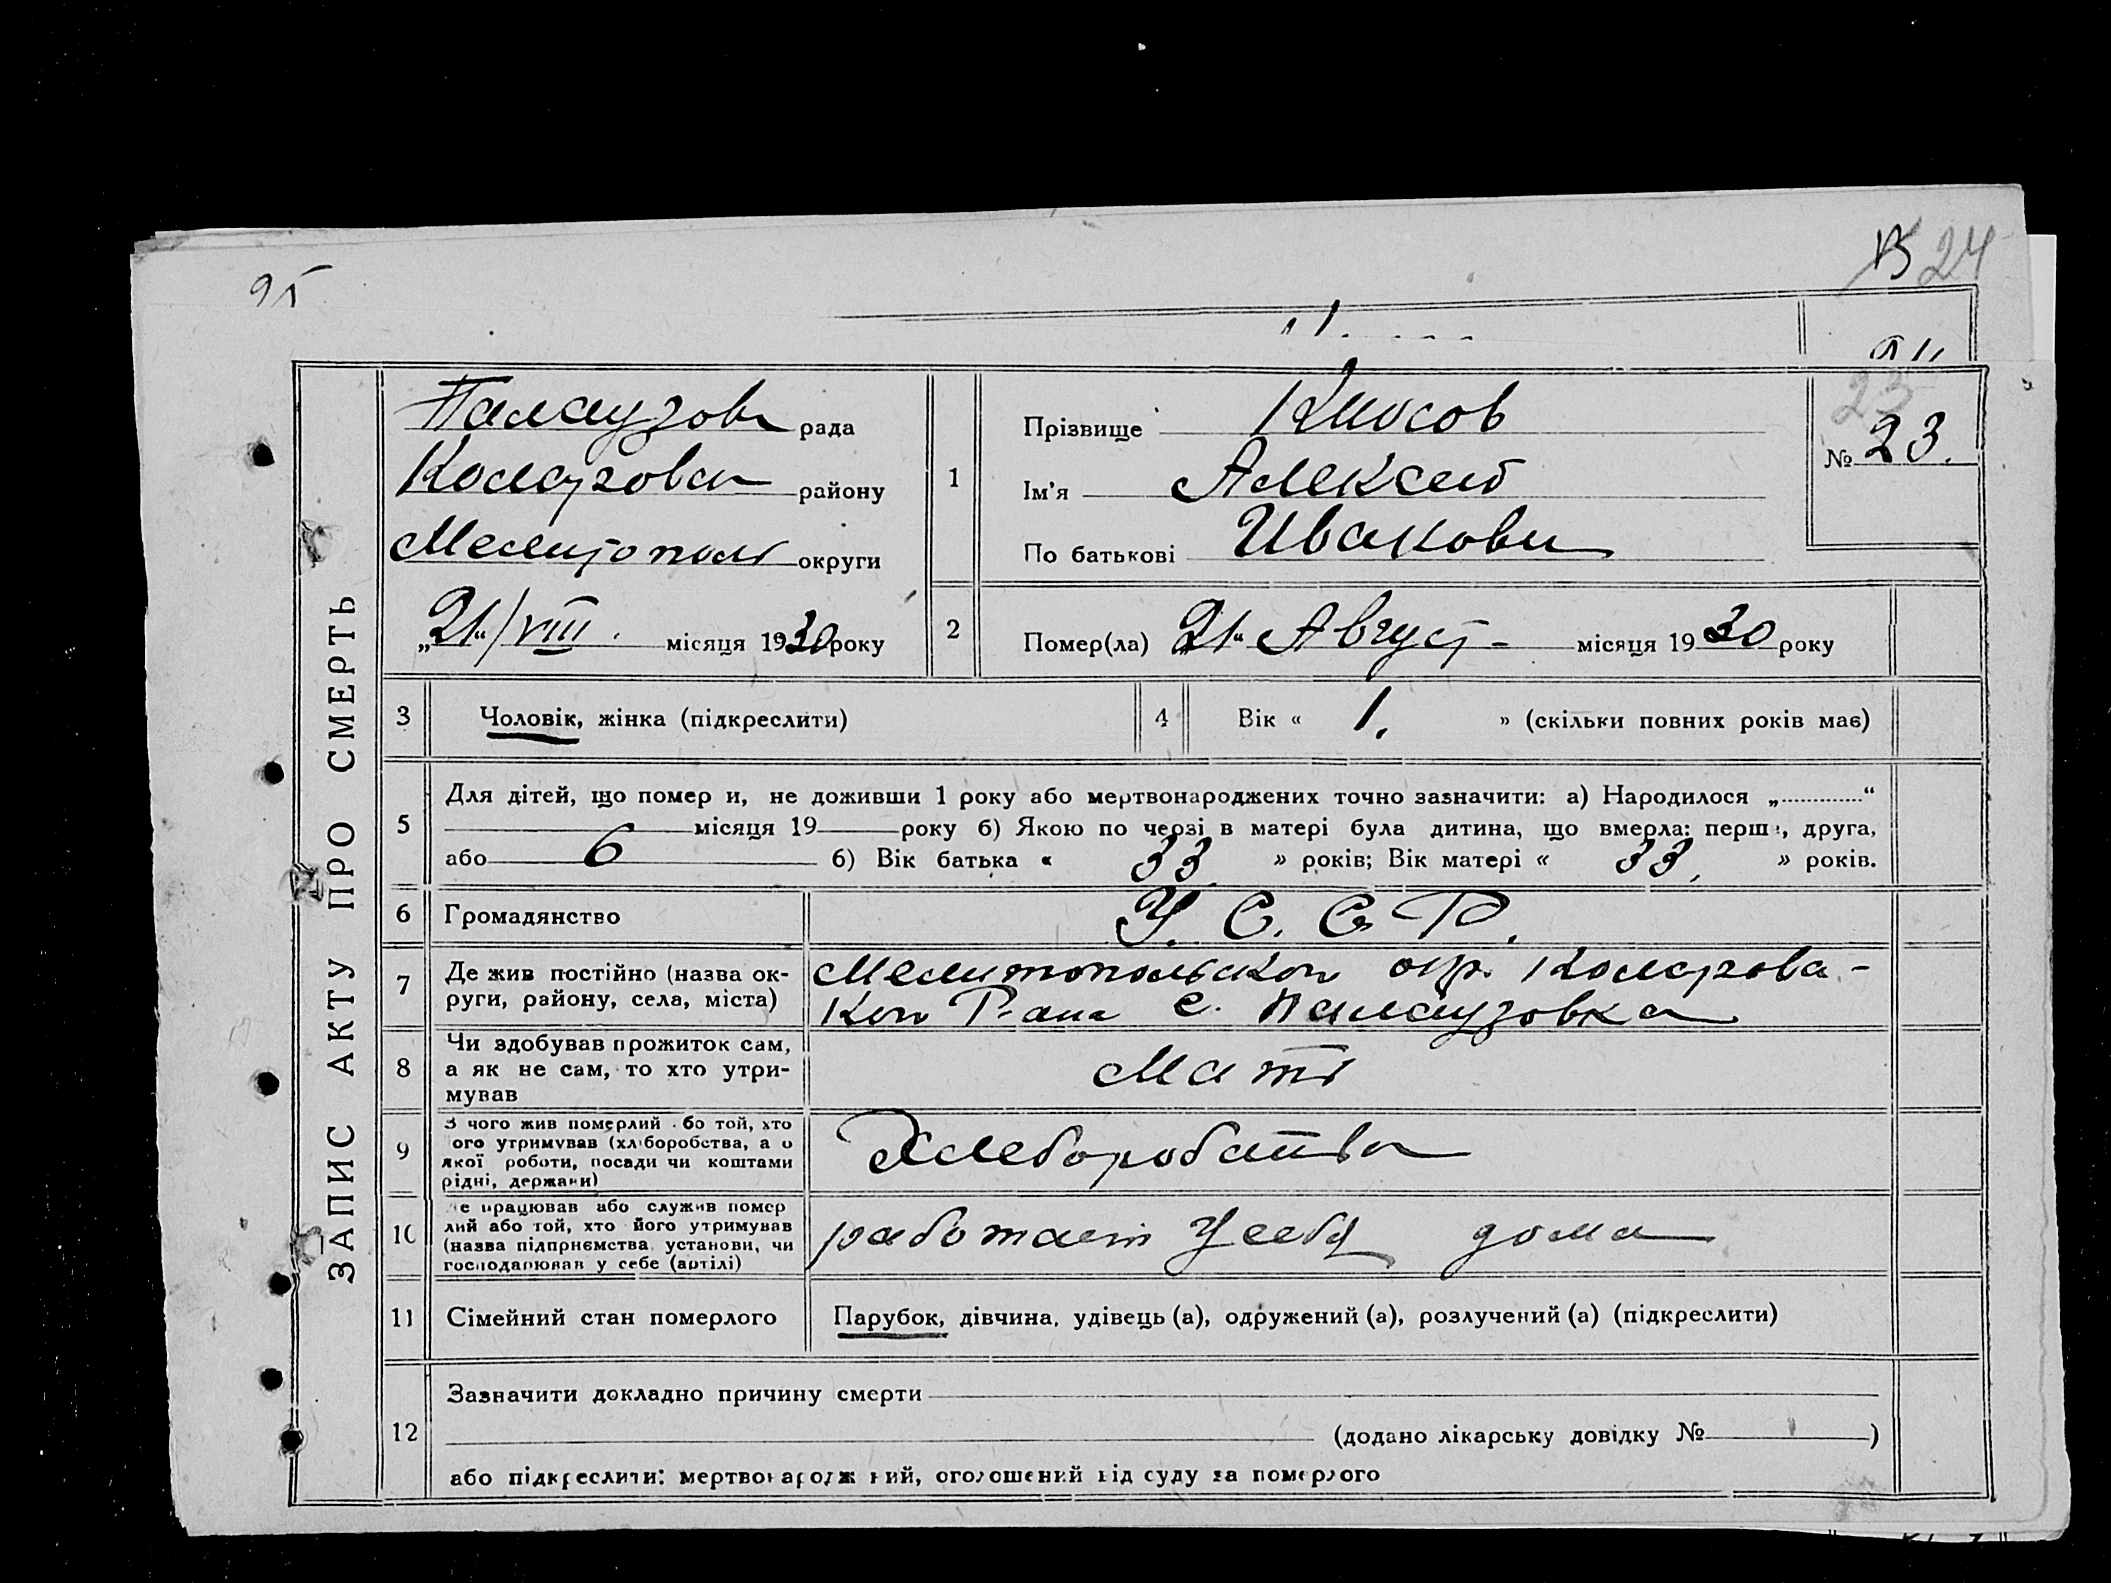 95
15 24
ЗАПИС АКТУ ПРО СМЕРТЬ
23
№ 23.
Палаузов рада
району
Мелитополь округи
„21“/VIII. місяця 1930 року
1
Прізвище
Ім'я Алексей
По батькові Иванови
2
Помер(ла) „21“ Август - місяця 1930 року
3 Чоловік, жінка (підкреслити)
4 Вік « 1. » (скільки повних років має)
5
Для дітей, що помер и, не доживши 1 року або мертвонароджених точно зазначити: а) Народилося „.............“
місяця 19 року б) Якою по черзі в матері була дитина, що вмерла: перша, друга,
або 6 б) Вік батька « 33 » років; Вік матері « 33 » років.
6 Громадянство У. С. С. Р.
7
Де жив постійно (назва ок-
руги, району, села, міста)
Мелитопольской окр.
кой Р-ана с. Палаузовка
8
Чи здобував прожиток сам,
а як не сам, то хто утри-
мував
Мать
9
З чого жив померлий або той, хто
його утримував (хліборобства, а о
якої роботи, посади чи коштами
рідні, держави)
Хлеборобства
10
Де працював або служив помер
лий або той, хто його утримував
(назва підприємства, установи, чи
господарював у себе (артілі)
работает у себя дома
11 Сімейний стан померлого
Парубок, дівчина, удівець (а), одружений (а), розлучений (а) (підкреслити)
12
Зазначити докладно причину смерти
(додано лікарську довідку № )
або підкреслити: мертвонароджений, оголошений від суду за померлого